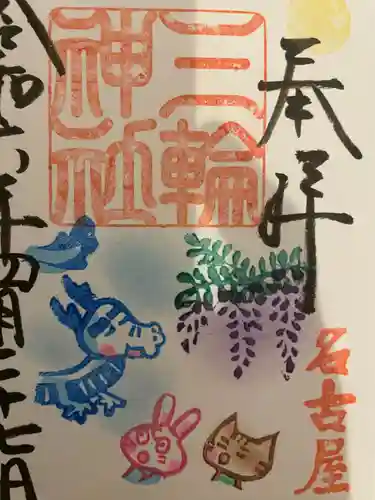 奉拝
名古屋
三輪神社
令和六年四月二十七日